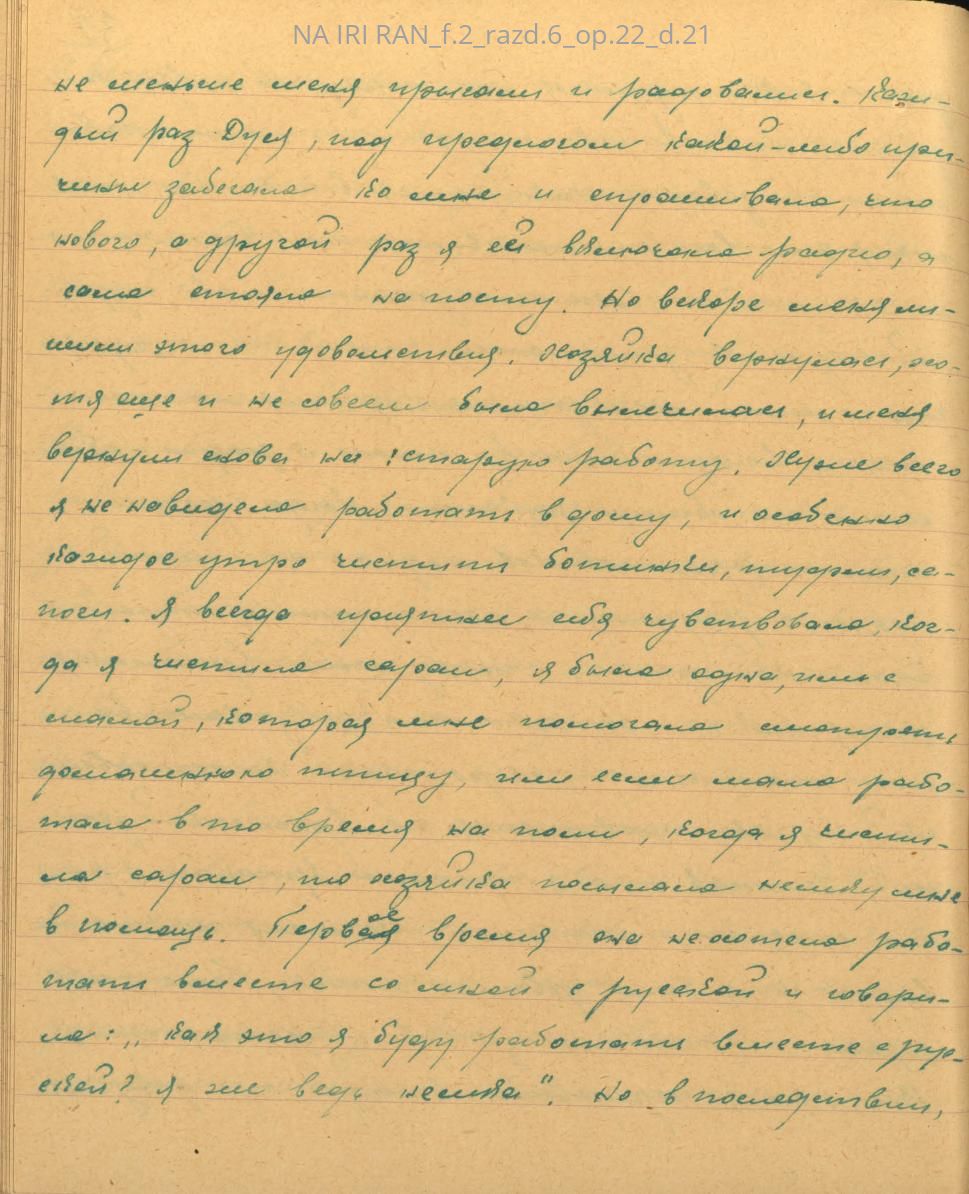 NA IRI RAN_f.2_razd.6_op.22_d.21
не меньше меня прыгали и радовались. Каж-
дый раз Дуся, под предлогом какой-либо при-
чины забегала ко мне и спрашивала, что
нового, а другой раз я ей включала радио, а
сама стояла на посту. Но вскоре меня ли-
шили этого удовольствия. Хозяйка вернулась, хо-
тя еще и не совсем была вылечилась, и меня
вернули снова на старую работу. Хуже всего
я не навидела работать в дому, и особенно
каждое утро чистить ботинки, туфли, са-
поги. Я всегда приятнее себя чувствовала, ког-
да я чистила сараи, я была одна, или с
мамой, которая мне помогала смотреть
домашнюю птицу, или если мама рабо-
тала в то время на поли, когда я чисти-
ла сараи, то хозяйка посылала немку мне
в помощь. Первое время она не хотела рабо-
тать вместе со мной с русской и говори-
ла: „Как это я буду работать вместе с рус-
ской? Я же ведь немка". Но в последствии,